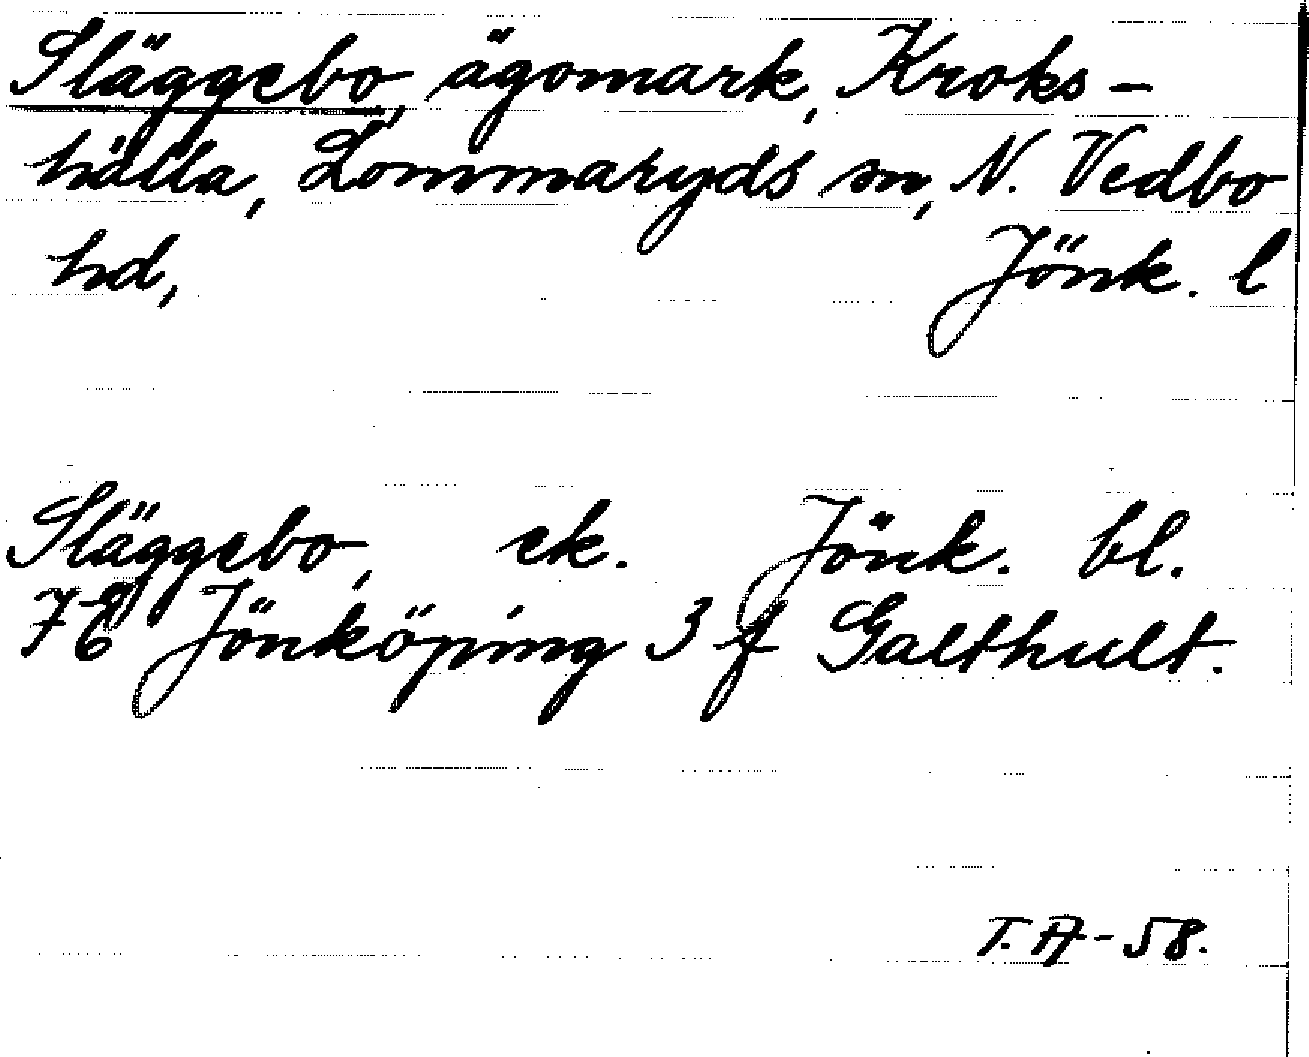 Släggebo, ägomark, Kroks-
hälla, Lommaryds sn, N. Vedbo
hd, Jönk. l
Släggebo, ek. Jönk. bl.
7E Jönköping 3 f Galthult.
T. A-58.